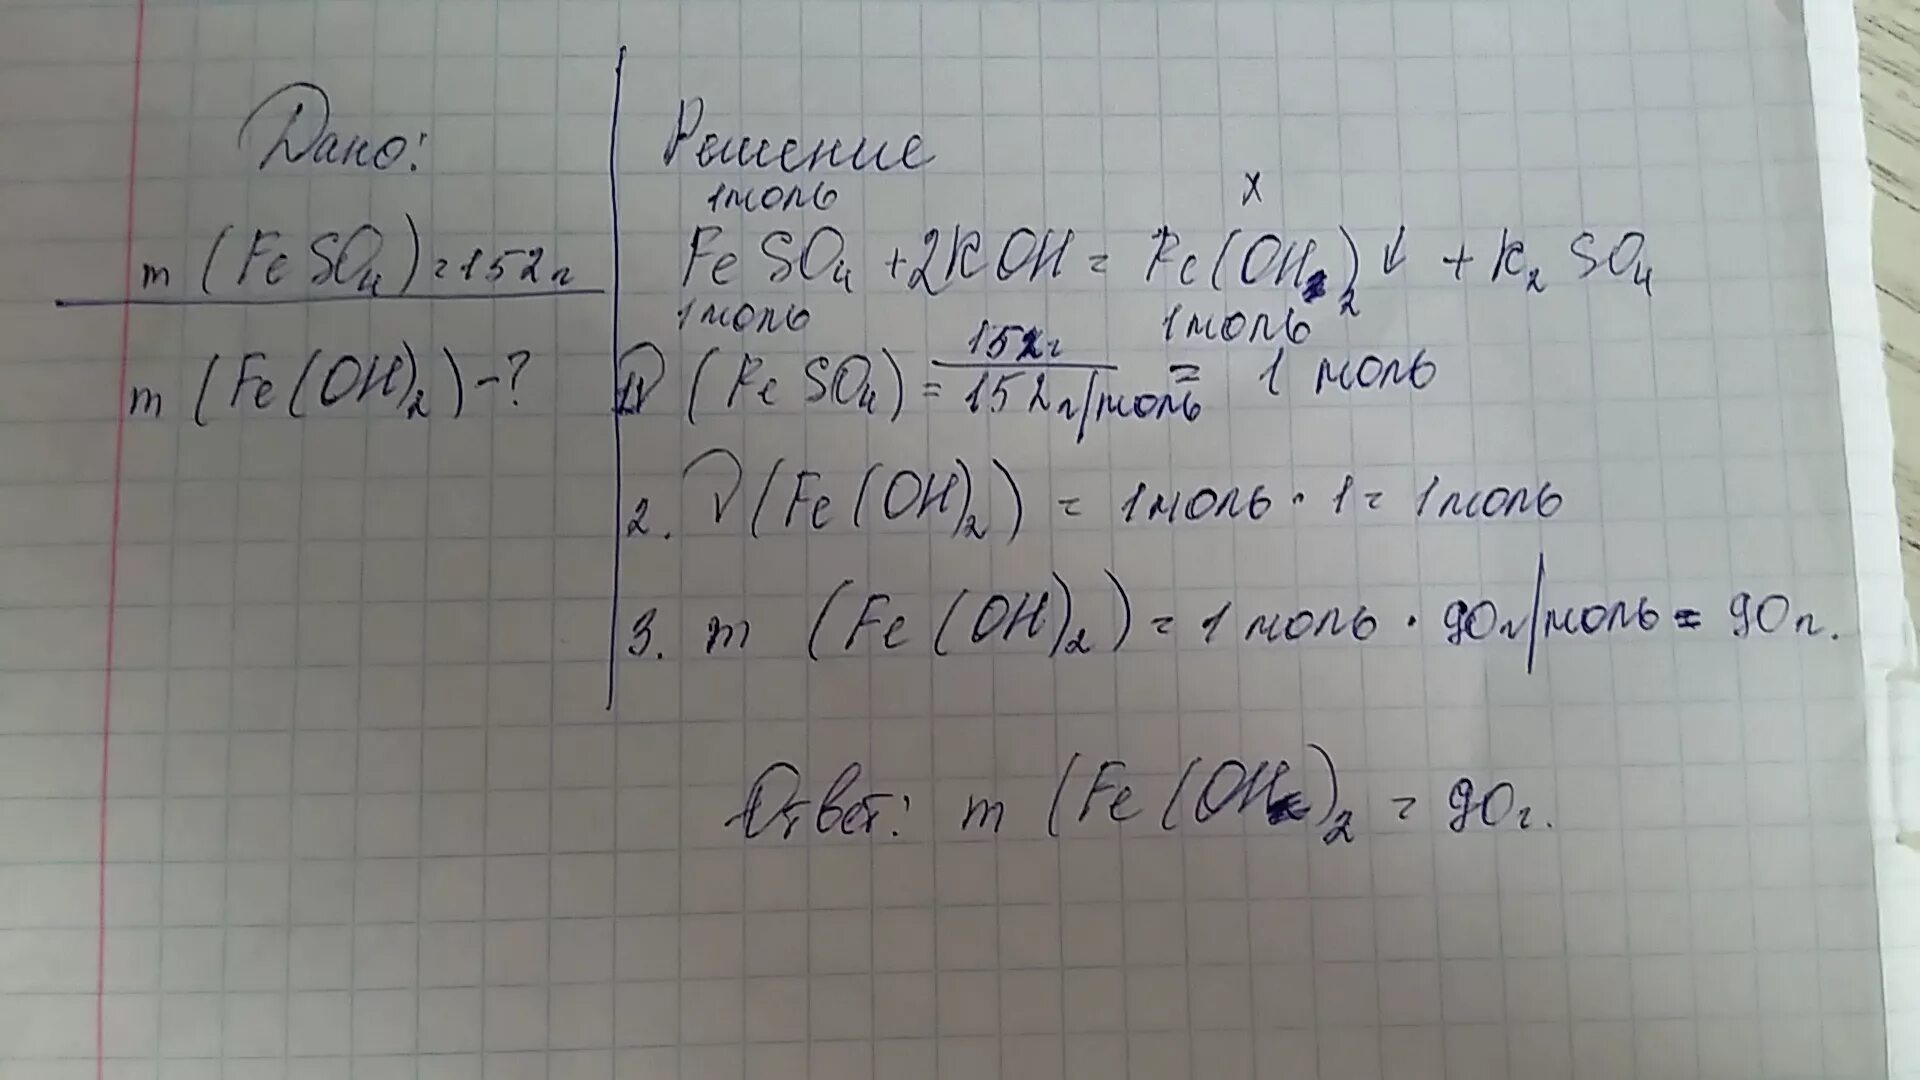 Дано:
m (FeSO₄) = 152 г
m (Fe(OH)₂) - ?
Решение
1 моль x
FeSO₄ + 2KOH = Fe(OH)₂ ↓ + K₂SO₄
1 моль 1 моль
(FeSO₄) = 152 г / 152 г/моль = 1 моль
2. ν (Fe(OH)₂) = 1 моль · 1 = 1 моль
3. m (Fe(OH)₂) = 1 моль · 90 г/моль = 90 г.
Ответ: m (Fe(OH)₂ = 90 г.